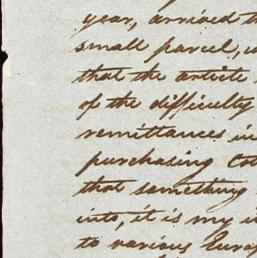 year, arrived th
small parcel, w
that the article
of the difficulty
remittances in
purchasing Cot
that something
into, it is my i
to various Europ